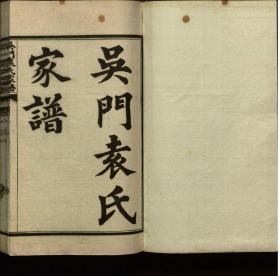 吳門袁氏
家譜